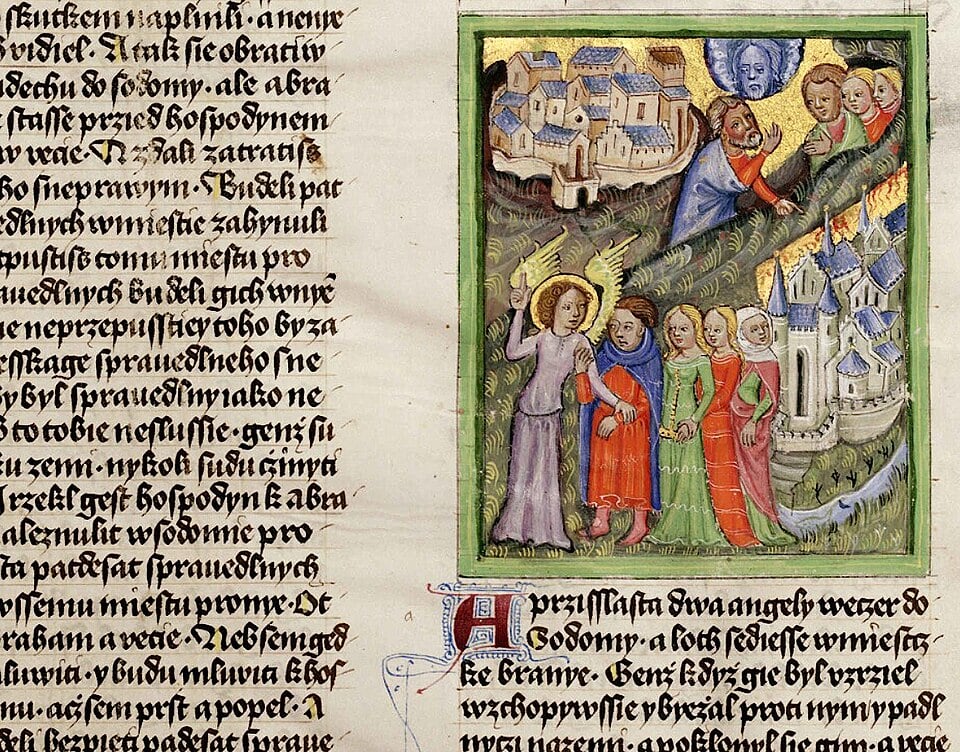 skutkem naplnili · a nenye
vidiel · A tak sie obratiw
dechu do sodomy · ale abra
stasse przied hospodynem
w vecie · Nzdali zatratiss
ho s neprawym · Budeli pat
dlnych w miestie zahynuli
tpustiss tomu miestu pro
auedlnych budeli gich wnye
ie neprzepusstiey toho by za
esskage sprauedlneho s ne
y byl sprauedlny iako ne
to tobie neslussie · genz su
u zemi · nykoli sudu czinyti
I rzekl gest hospodyn k abra
aleznulit w sodomie pro
sta patdesat sprauedlnych
wssemu miestu pronye · Ot
raham a vecie · Neb sem ged
luwiti · y budu mluwiti k hos
nu · acz sem prst a popel · A
deli bezpieti padesat spraue
A przisslasta dwa angely weczer do
Sodomy · a loth sediesse w miestcz
ke branye · Genz kdyz gie byl vzrziel
wzchopywssie y byezal proti nym y padl
nyczi na zemi · a poklonyl sie gim · a vecie